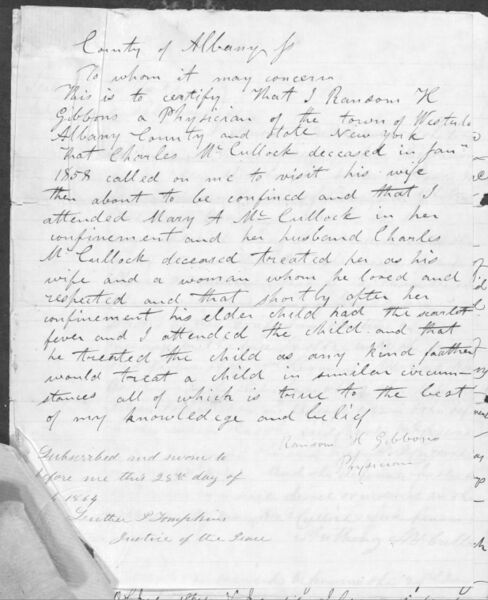 County of Albany ss
To whom it may concern
This is to certify That I Ransom H
Gibbons a Physician of the town of Westerlo
Albany County and state New York
That Charles Mc Cullock deceased in Jany
1858 called on me to visit his wife
then about to be confined and that I
attended Mary A Mc Cullock in her
confinement and her husband Charles
Mc Cullock deceased treated her as his
wife and a woman whom he loved and
respected and that shortly after her
confinement his elder child had the scarlet
fever and I attended the child and that
he treated the child as any kind father
would treat a child in similar circum-
stances all of which is true to the best
of my knowledge and belief
Ransom H Gibbons
Physician
Subscribed and sworne to
before me this 28th day of
1864
Luther S Tompkins
Justice of the Peace